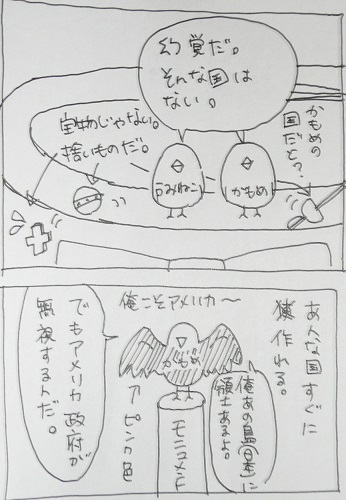 かもめの
国だと?
幻覚だ。
そんな国は
ない。
かもめ
うみねこ
宝物じゃない。
捨いものだ。
あんな国すぐに
作れる。
俺こそアメリカ〜
かもめ
俺あの島に
領土あるよ。
モニュメント
↑ピンク色
でもアメリカ政府が
無視するんだ。